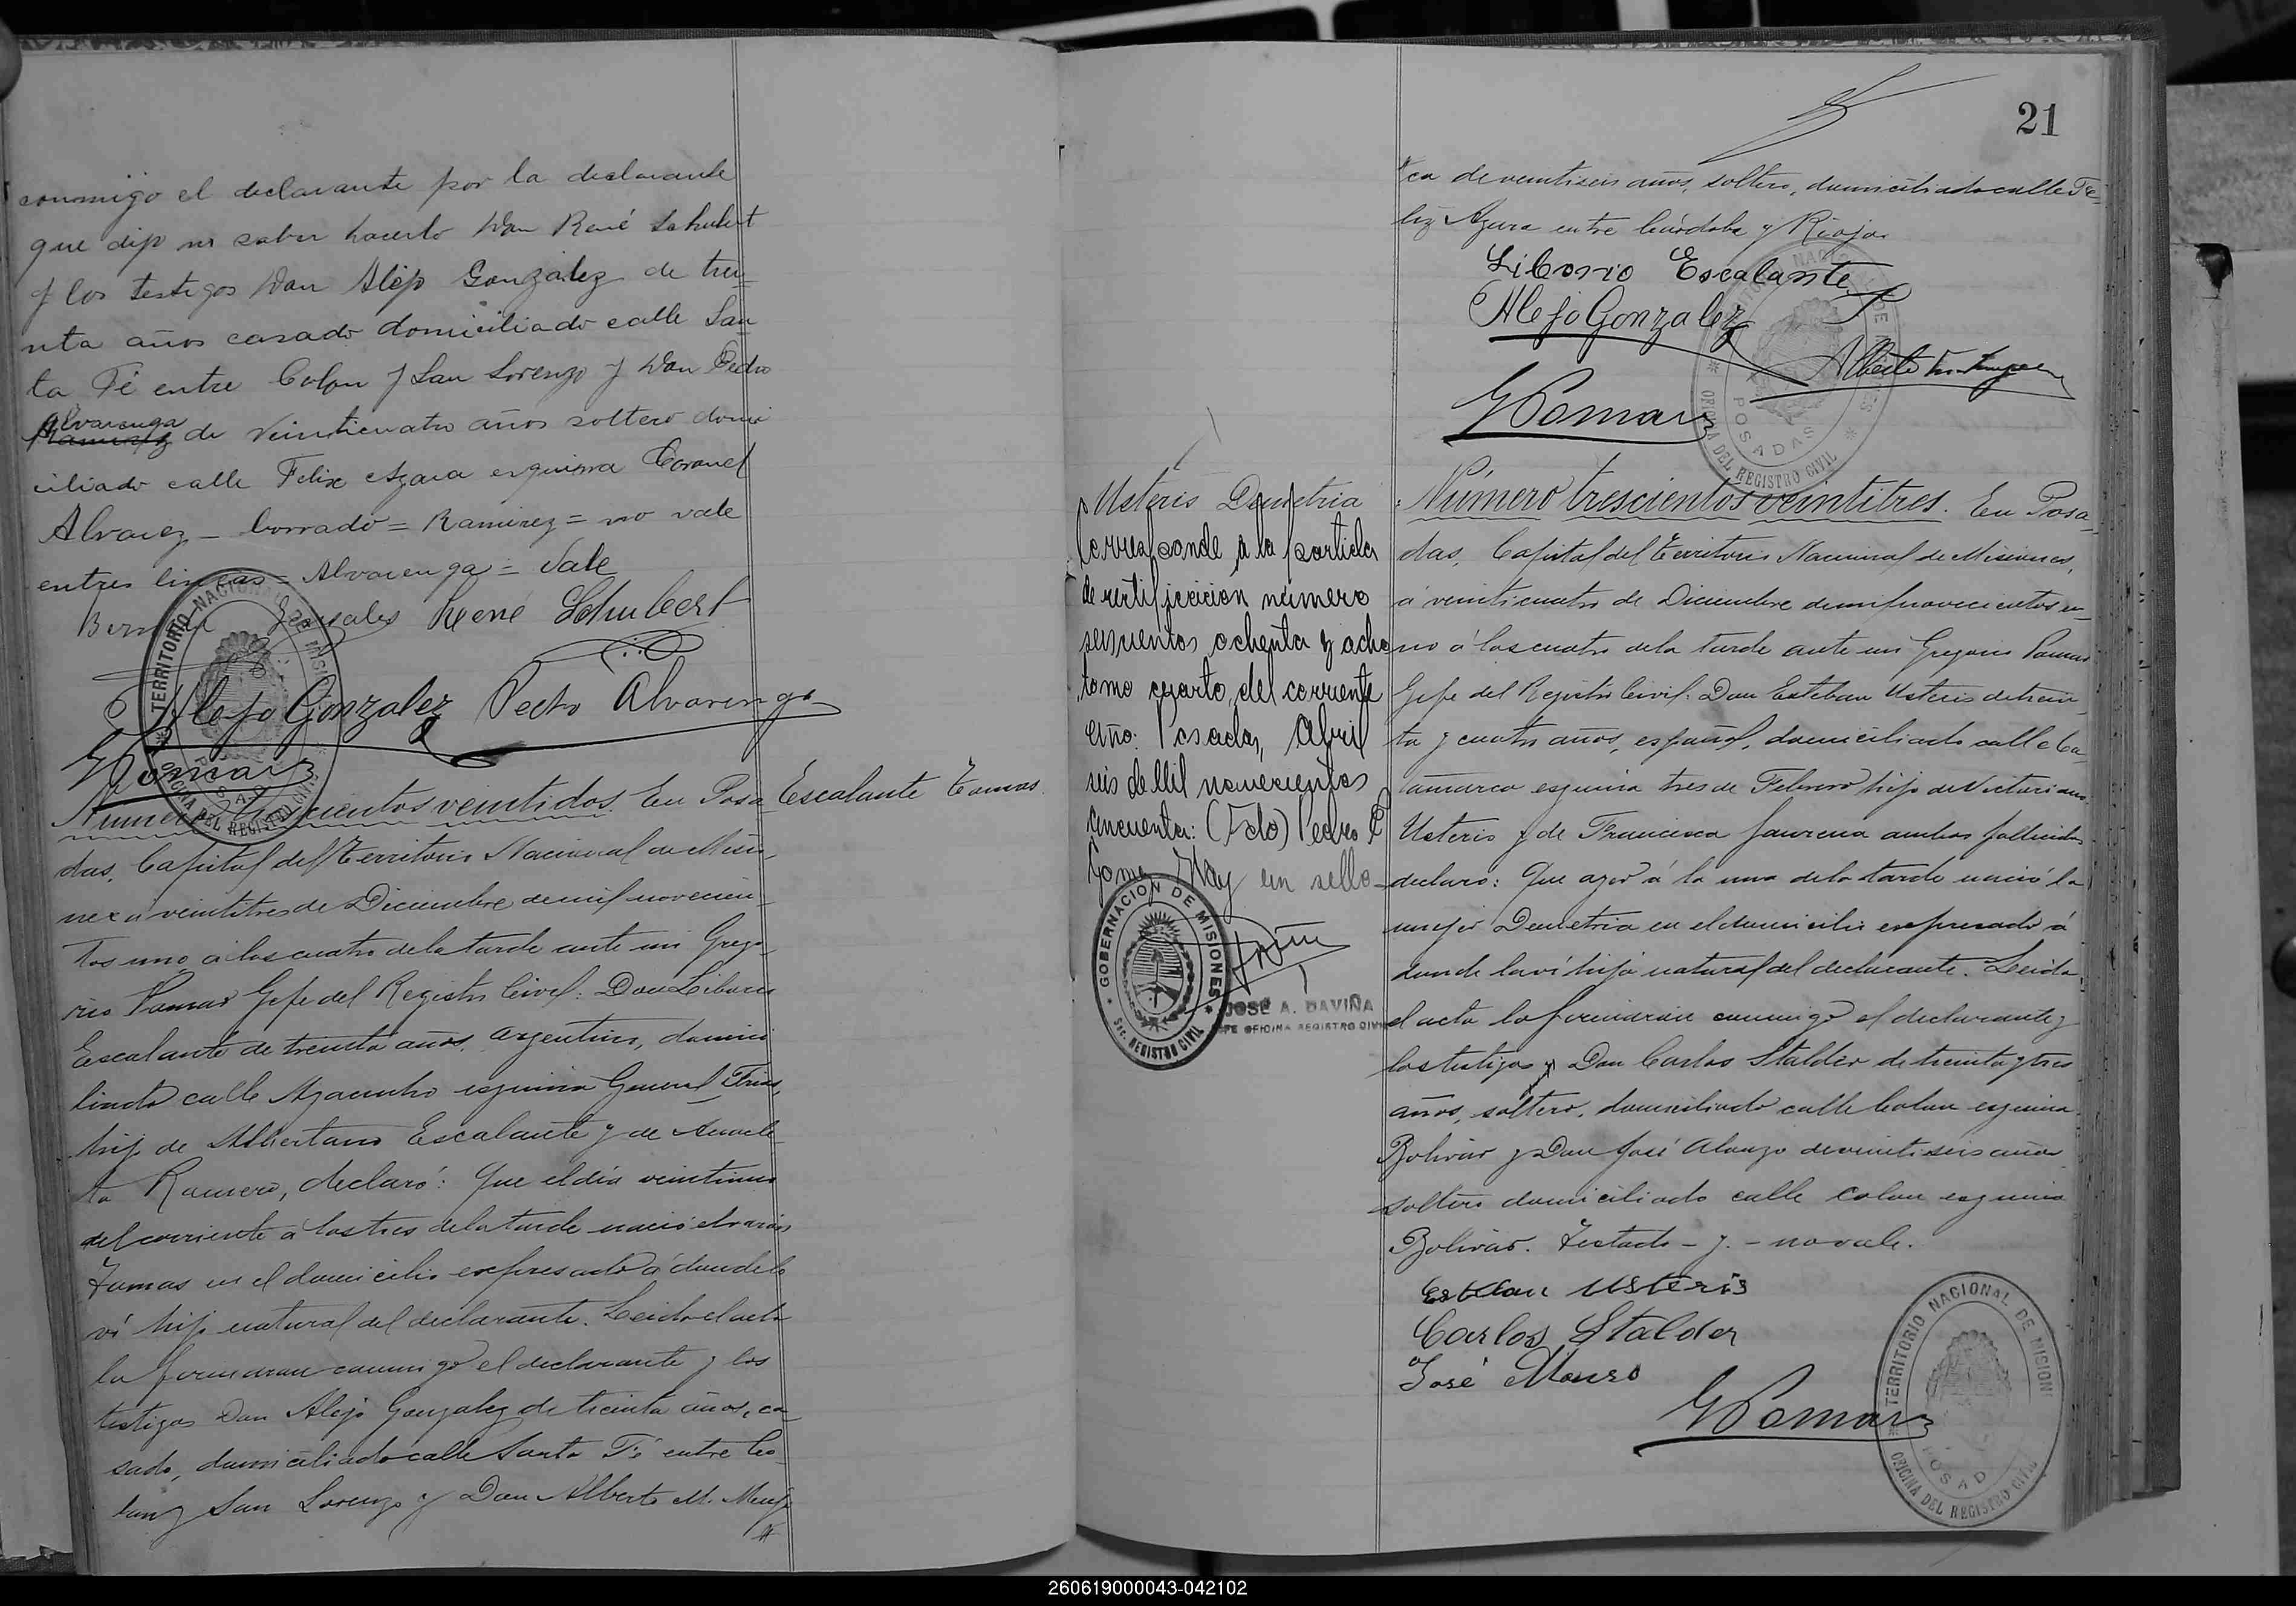 conmigo el declarante por la declarante
que dijo no saber hacerlo Don René Schubert
y los testigos Don Alejo González de trei-
nta años casado domiciliado calle San
ta Fé entre Colon y San Lorenzo y Don Pedro
Alvarenga
Ramirez de veinticuatro años soltero domi
ciliado calle Felix Azara esquina Coronel
Alvarez – borrado = Ramirez = no vale
entres lineas = Alvarenga = Vale
Gonzales René Schubert
Alejo Gonzalez Pedro Alvarenga
GPomar
TERRITORIO NACIONAL DE MISIONES
OFICINA DEL REGISTRO CIVIL
POSADAS
Número trescientos veintidos. En Posa
Escalante Tomas.
das, Capital del Territorio Nacional de Misio-
nes a veintitres de Diciembre de mil novecien-
tos uno, a las cuatro de la tarde ante mi Grego-
rio Pomar Gefe del Registro Civil: Don Liborio
Escalante de treinta años, argentino, domici
liado calle Ayacucho esquina General Frias,
hijo de Albertano Escalante y de Anacle
ta Romero, declaró: Que el día veintiuno
del corriente a las tres de la tarde nació el varón
Tomas en el domicilio expresado a donde lo
ví hijo natural del declarante. Leida el acta
la firmaron conmigo el declarante y los
testigos Don Alejo Gonzalez de treinta años, ca
sado, domiciliado calle Santa Fé entre Co-
lon y San Lorenzo y Don Alberto M.
21
ca de veintiseis años, soltero, domiciliado calle Fe
liz Azara entre Córdoba y Rioja.
Liborio Escalante
Alejo Gonzalez
Alberto
GPomar
TERRITORIO NACIONAL DE MISIONES
OFICINA DEL REGISTRO CIVIL
POSADAS
Usteris Demetria
Corresponde a la partida
de rectificación número
seiscientos ochenta y ocho
tomo cuarto, del corriente
año: Posadas, Abril
seis de Mil novecientos
cincuenta: (Fdo) Pedro P
Gome Hay un sello
GOBERNACION DE MISIONES
Sec. REGISTRO CIVIL
JOSÉ A. DAVIÑA
JEFE OFICINA REGISTRO CIVIL
Número trescientos veintitres. En Posa-
das, Capital del Territorio Nacional de Misiones,
a veinticuatro de Diciembre de mil novecientos u-
no á las cuatro de la tarde ante mi Gregorio Pomar
Gefe del Registro Civil: Don Esteban Usteris de trein
ta y cuatro años, español, domiciliado calle Ca
tamarca esquina tres de Febrero hijo de Victoriano
Usteris y de Francisca Jaurena ambos fallecidos
declaro: Que ayer á la una de la tarde nació la
mujer Demetria en el domicilio expresado á
donde la ví hija natural del declarante. Leida
el acta la firmaron conmigo el declarante y
los testigos y Don Carlos Stalder de treinta y tres
años, soltero, domiciliado calle Colon esquina
Bolivar y Don José Alonzo de veintiseis años
soltero domiciliado calle Colon esquina
Bolivar. Testado – y. – no vale.
Esteban Usteris
Carlos Stalder
José Alonso
GPomar
TERRITORIO NACIONAL DE MISION
OFICINA DEL REGISTRO CIVIL
POSAD
260619000043-042102